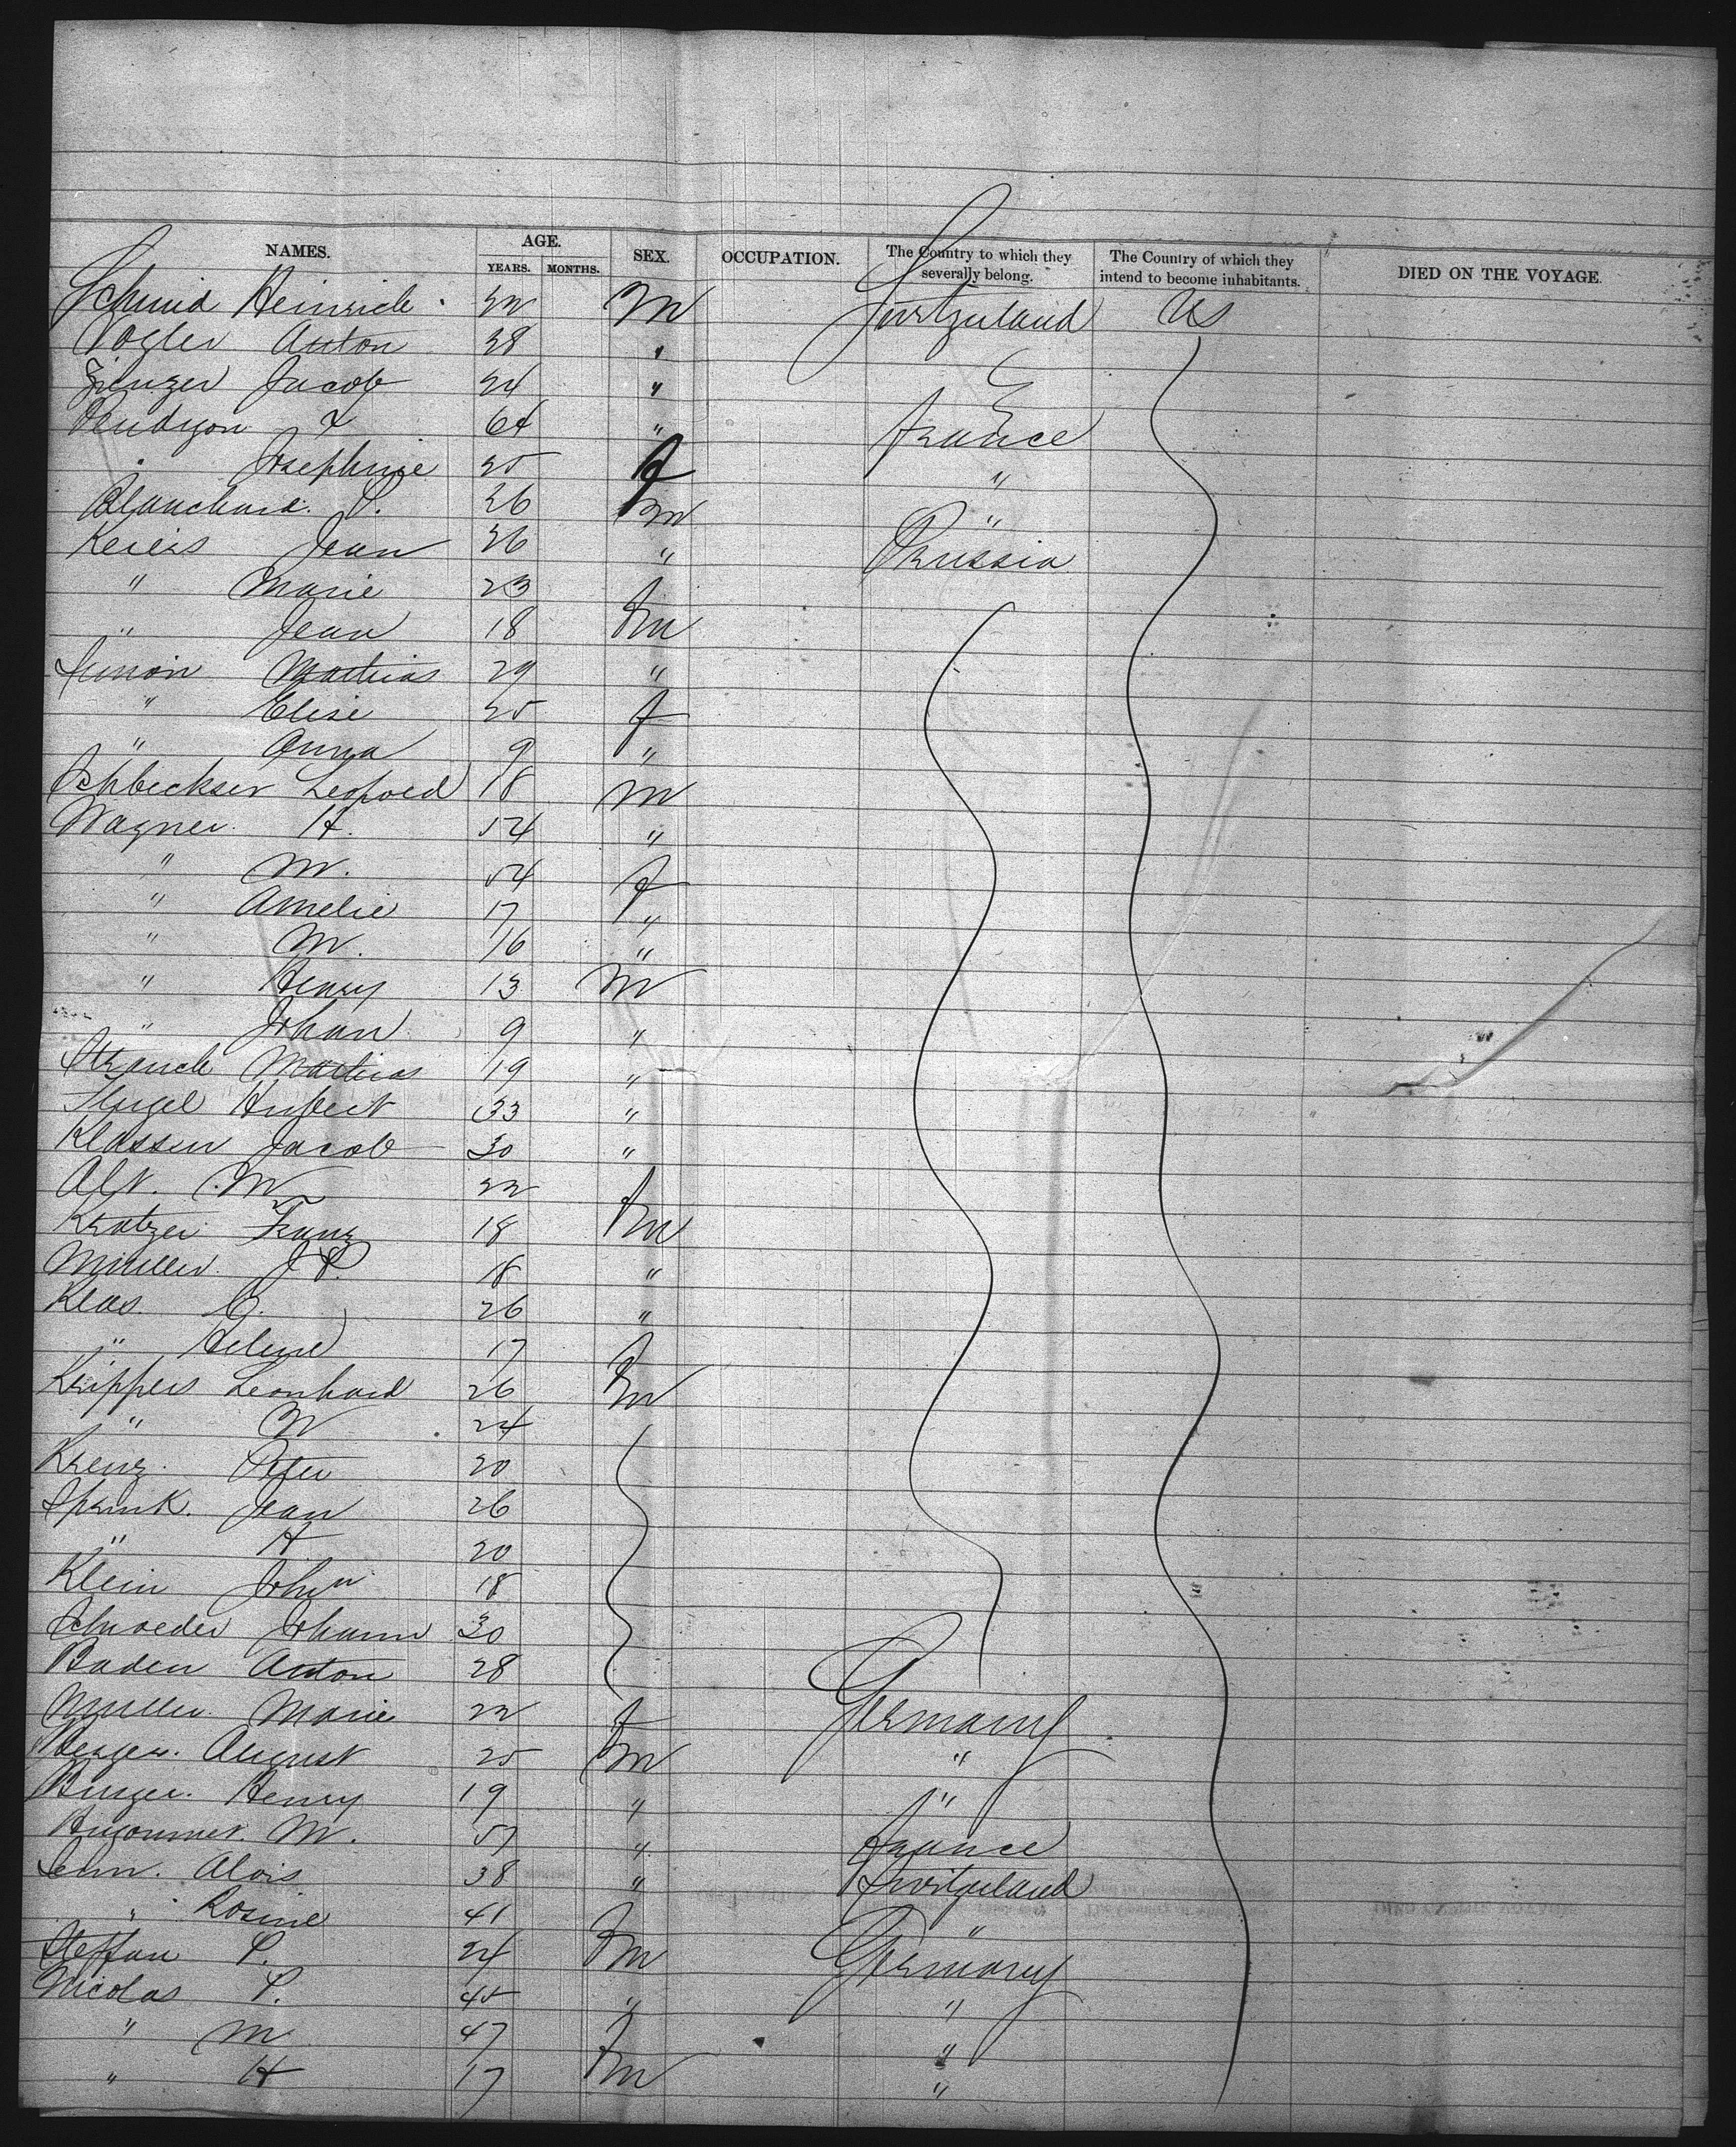 NAMES. AGE. SEX. OCCUPATION. The Country to which they severally belong. The Country of which they intend to become inhabitants. DIED ON THE VOYAGE.
YEARS. MONTHS.
Schmid Heinrich 22 M Switzerland US
Vogler Anton 28 "
Jacob 24 "
F 64 " France
Josephine 25 f "
Blanchard P. 26 m "
Keiers Jean 26 " Prussia
" Marie 23 f
" Jean 18 m
Simon Mathias 29 "
" Elise 25 f
" Anna 9 "
Leopold 18 m
Wagner H. 54 "
" M. 54 f
" Amelie 17 "
" M. 16 "
" Henry 13 m
" Johan 9 "
Mathias 19 "
Hubert 33 "
Klassen Jacob 30 "
Alt. M 22 f
Kratzer Franz 18 m
Muller J P. 18 "
Klas C. 26 "
" Helene 17 f
Krippes Leonhard 26 m
" N 24
Krenz Peter 20
Sprink. Jean 26
" H 20
Klein John 18
Schroeder Johann 30
Baden Anton 28
Muller Marie 22 f Germany
Berger. August 25 m "
Burger. Henry 19 " "
M. 57 " France
Alois 38 " Switzerland
" Rosine 41 f "
Steffan P. 24 m Germany
Nicolas P. 45 " "
" M 47 f "
" H 17 m "